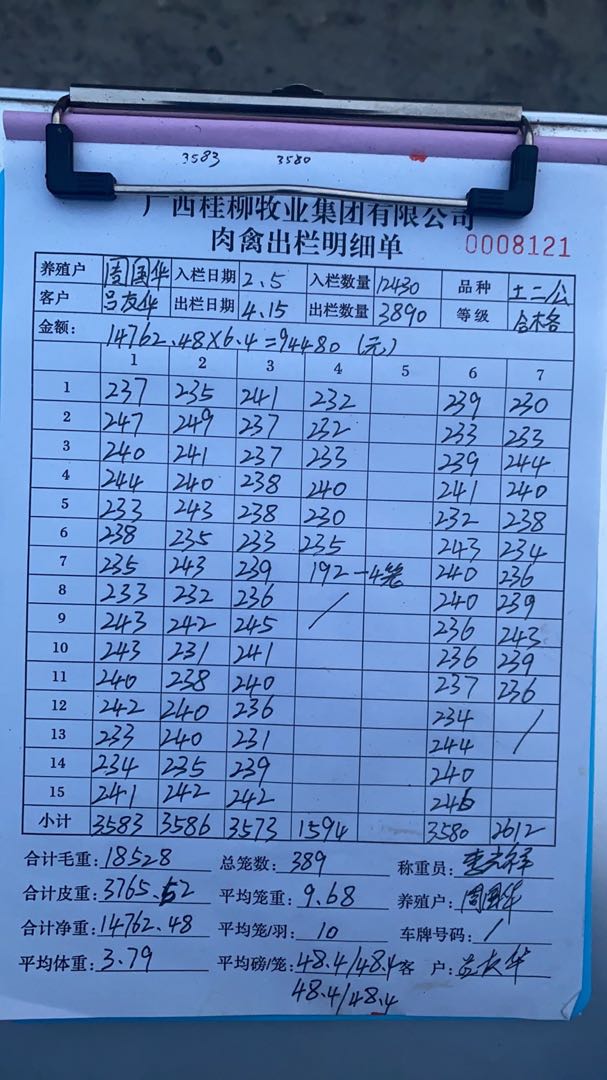 3583 3580
广西桂柳牧业集团有限公司
肉禽出栏明细单 0008121
养殖户 周国华 入栏日期 2.5 入栏数量 12430 品种 土二公
客户 吕友华 出栏日期 4.15 出栏数量 3890 等级 合格
金额: 14762.48×6.4=94480(元)
1 2 3 4 5 6 7
1 237 235 241 232 239 230
2 247 249 237 232 233 233
3 240 241 237 233 239 244
4 244 240 238 240 241 240
5 233 243 238 230 232 238
6 238 235 233 235 243 234
7 235 243 239 192-4笼 240 236
8 233 232 236 / 240 239
9 243 242 245 236 243
10 243 231 241 236 239
11 240 238 240 237 236
12 242 240 236 234 /
13 233 240 231 244
14 234 235 239 240
15 241 242 242 246
小计 3583 3586 3573 1594 3580 2612
合计毛重: 18528 总笼数: 389 称重员:
合计皮重: 3765.52 平均笼重: 9.68 养殖户: 周国华
合计净重: 14762.48 平均笼/羽: 10 车牌号码: /
平均体重: 3.79 平均磅/笼: 48.4/48.4 客 户:
48.4/48.4